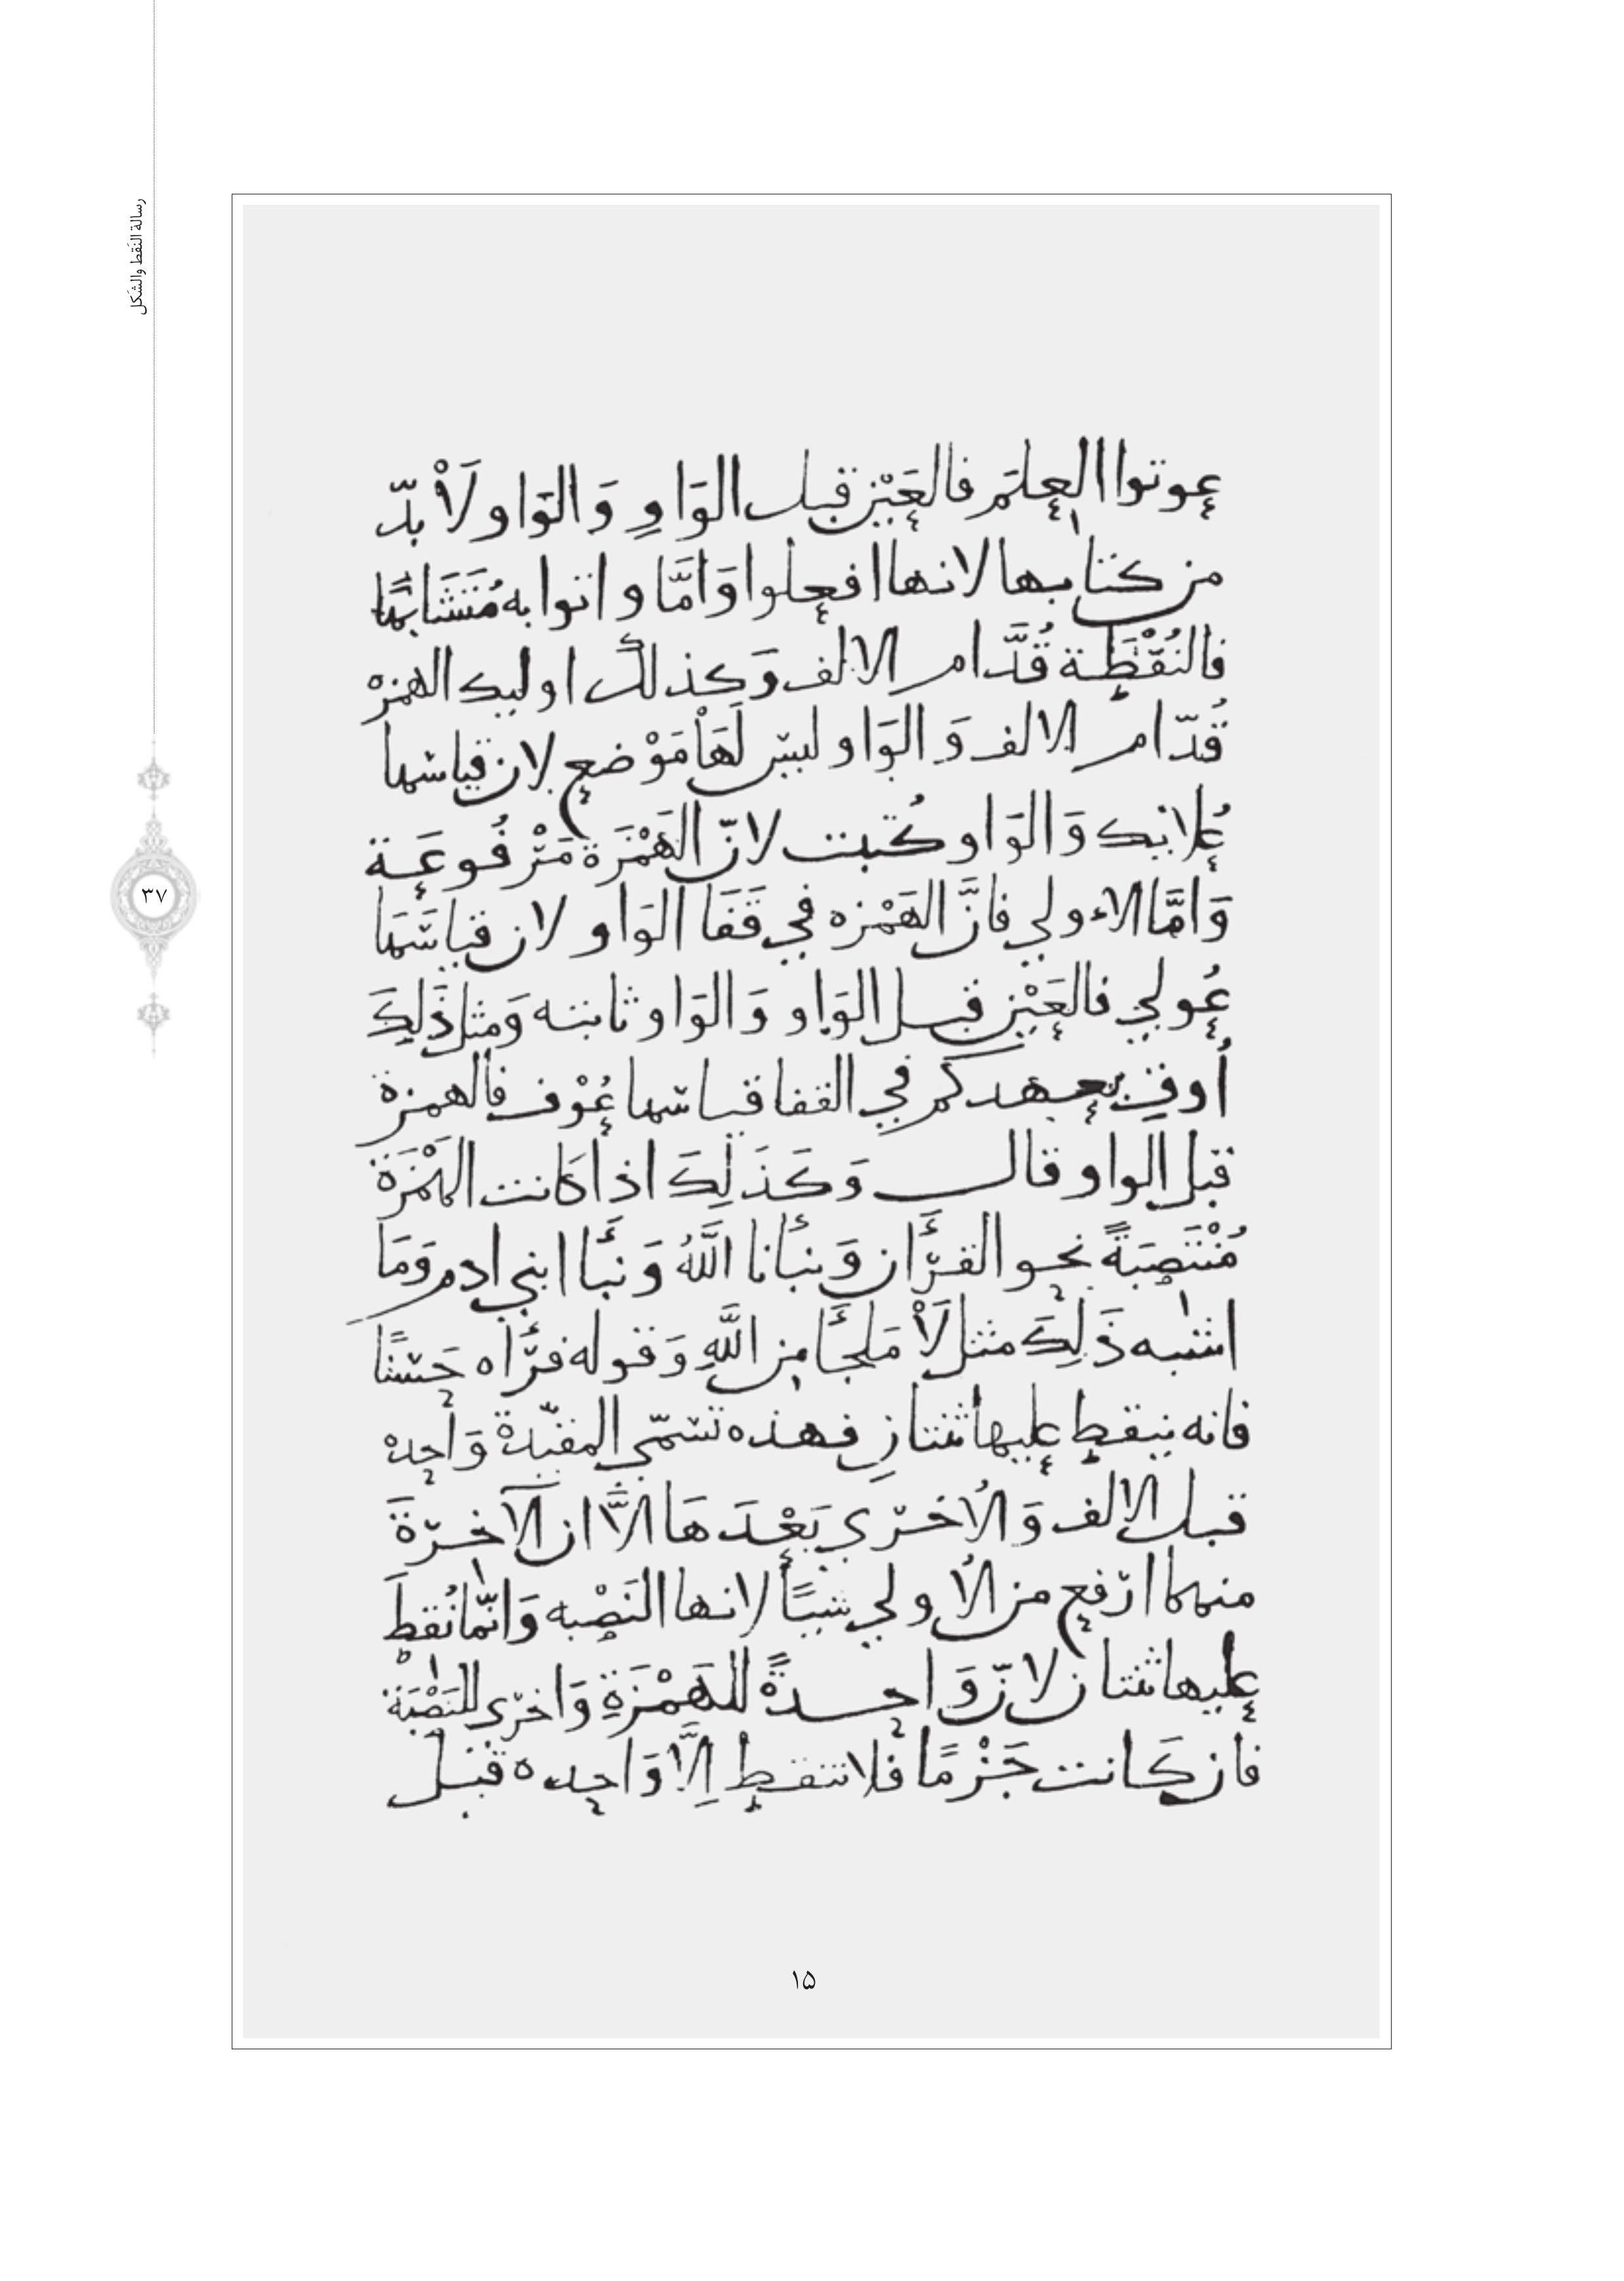 رسالة النقط والشكل
عوتوا العِلمَ فالعَيْن قبل الوَاوِ وَالوَاو لَاْ بدّ
من كتابها لانها افعلوا وَامَّا واتوا به مُتَشَابِهًا
فالنُقْطَة قُدَّام الالف وَكذلك اوليك الهمزه
قُدّام الالف وَالوَاو ليسَ لَهَاْ مَوْضع لان قياسها
عُلايك وَالوَاو كُتبت لانّ الهَمْزَة مَرْفُوعَة
وَامَّا الاءولي فانَّ الهَمْزه في قَفَا الوَاو لان قياسَهَا
عُولي فالعَيْن قبل الوَاو وَالوَاو ثابته وَمثل ذَلِكَ
أُوفِ بعهدكم في القفا قياسها عُوْف فالهمزة
قبل الواو قال وَكَذَلِكَ اذا كَانت الهَمْزَة
مُنْتَصِبَةً نحو القرْأَان وَنبأنا اللَّهُ وَنبَأَ ابني ادم وَمَا
اشبه ذَلِكَ مثل لَاْ مَلجَأَ من اللَّهِ وَقوله فرَّأَاه حَسَنًا
فانه ينقط عليها ثنتانِ فهذه تسَمّى المقيّدة وَاحده
قبل الالف وَالُاخرَى بَعْدَهَا الاَّ ان الآخرَةَ
منهما ارفع من الُاولي شيًا لانها النَصْبه وَانّما نُقطَ
عليها ثنتان لانّ وَاحدةً للهَمْزَةِ وَاخرَى للنَصْبَة
فان كَانت جَزْمًا فلا تنقط اِلَّا وَاحده قبل
٣٧
١٥